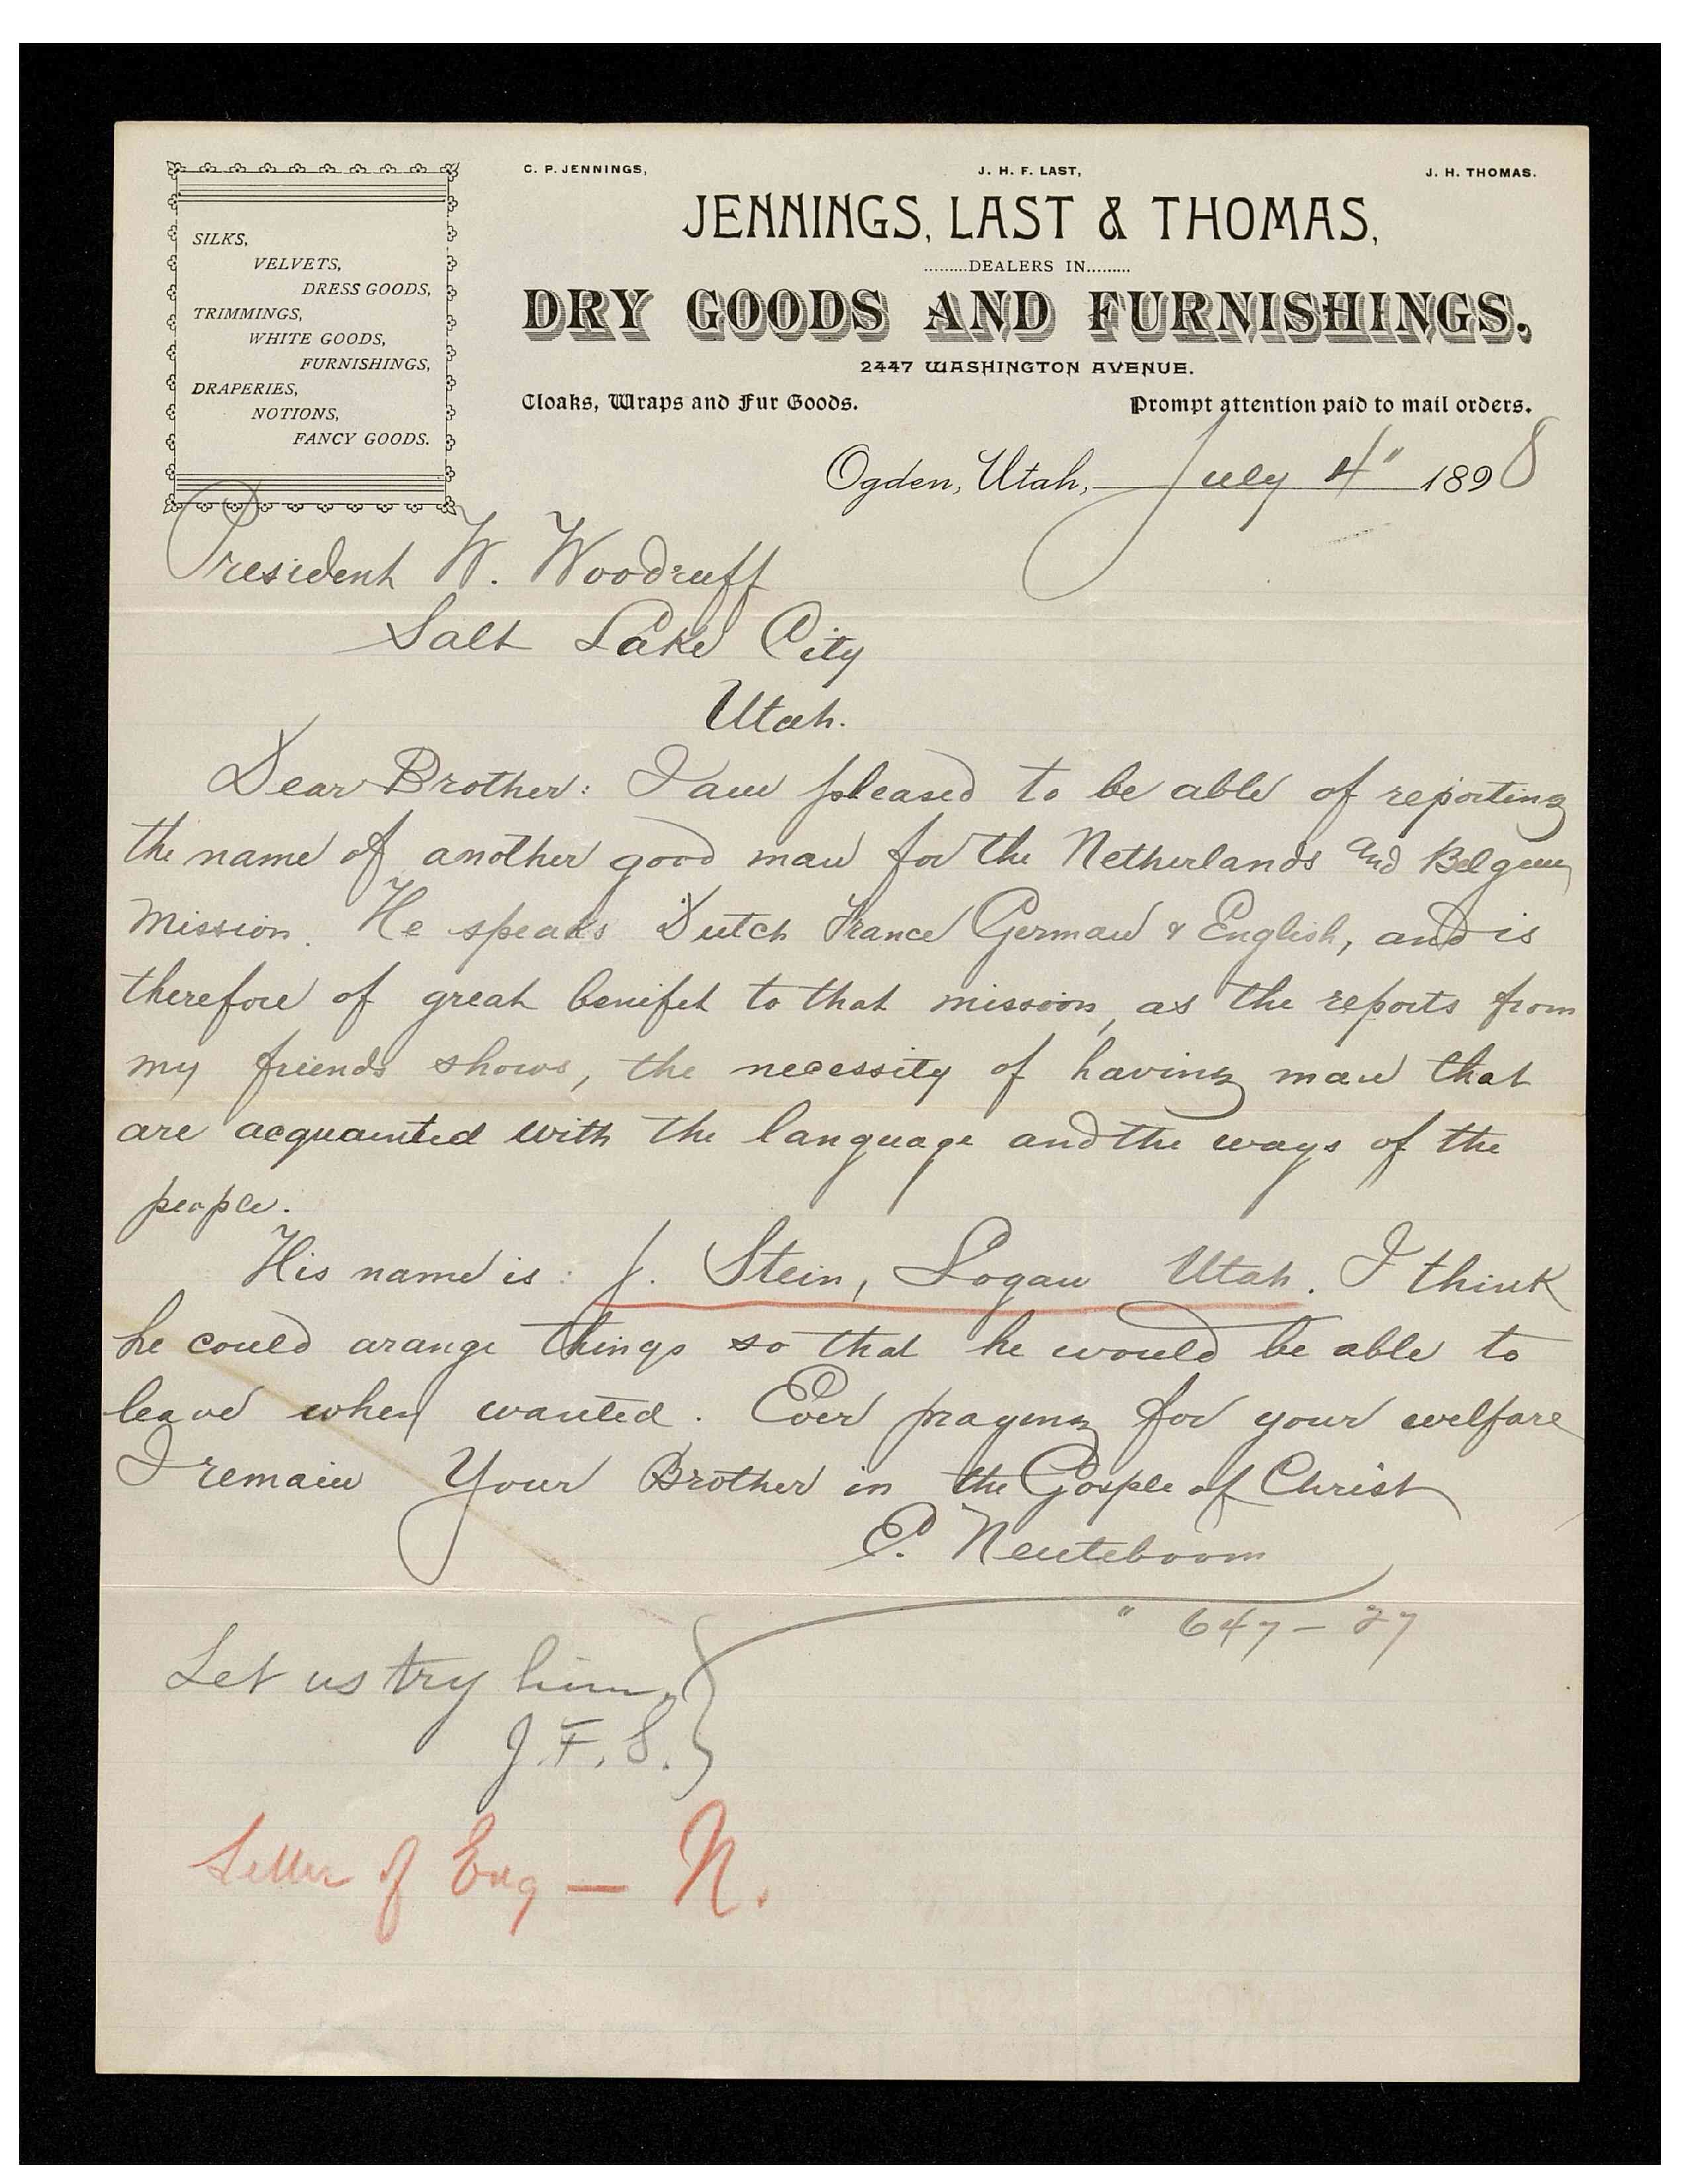 C. P. JENNINGS, J. H. F. LAST, J. H. THOMAS.
JENNINGS, LAST & THOMAS,
.........DEALERS IN.........
DRY GOODS AND FURNISHINGS.
2447 WASHINGTON AVENUE.
Cloaks, Wraps and Fur Goods. Prompt attention paid to mail orders.
SILKS,
VELVETS,
DRESS GOODS,
TRIMMINGS,
WHITE GOODS,
FURNISHINGS,
DRAPERIES,
NOTIONS,
FANCY GOODS.
Ogden, Utah, July 4" 1898
President W. Woodruff
Salt Lake City
Utah.
Dear Brother: I am pleased to be able of reporting
the name of another good man for the Netherlands and Belgeum
Mission. He speaks Dutch France German & English, and is
therefore of great benifet to that mission, as the reports from
my friends shows, the necessity of having man that
are acquainted with the language and the ways of the
people.
His name is: J. Stein, Logan Utah. I think
he could arange things so that he would be able to
leave when wanted. Ever praying for your welfare
I remain Your Brother in the Gosple of Christ
P. Neuteboom
" 647 – 27
Let us try him,
J. F. S.
Letter of Enq — N.